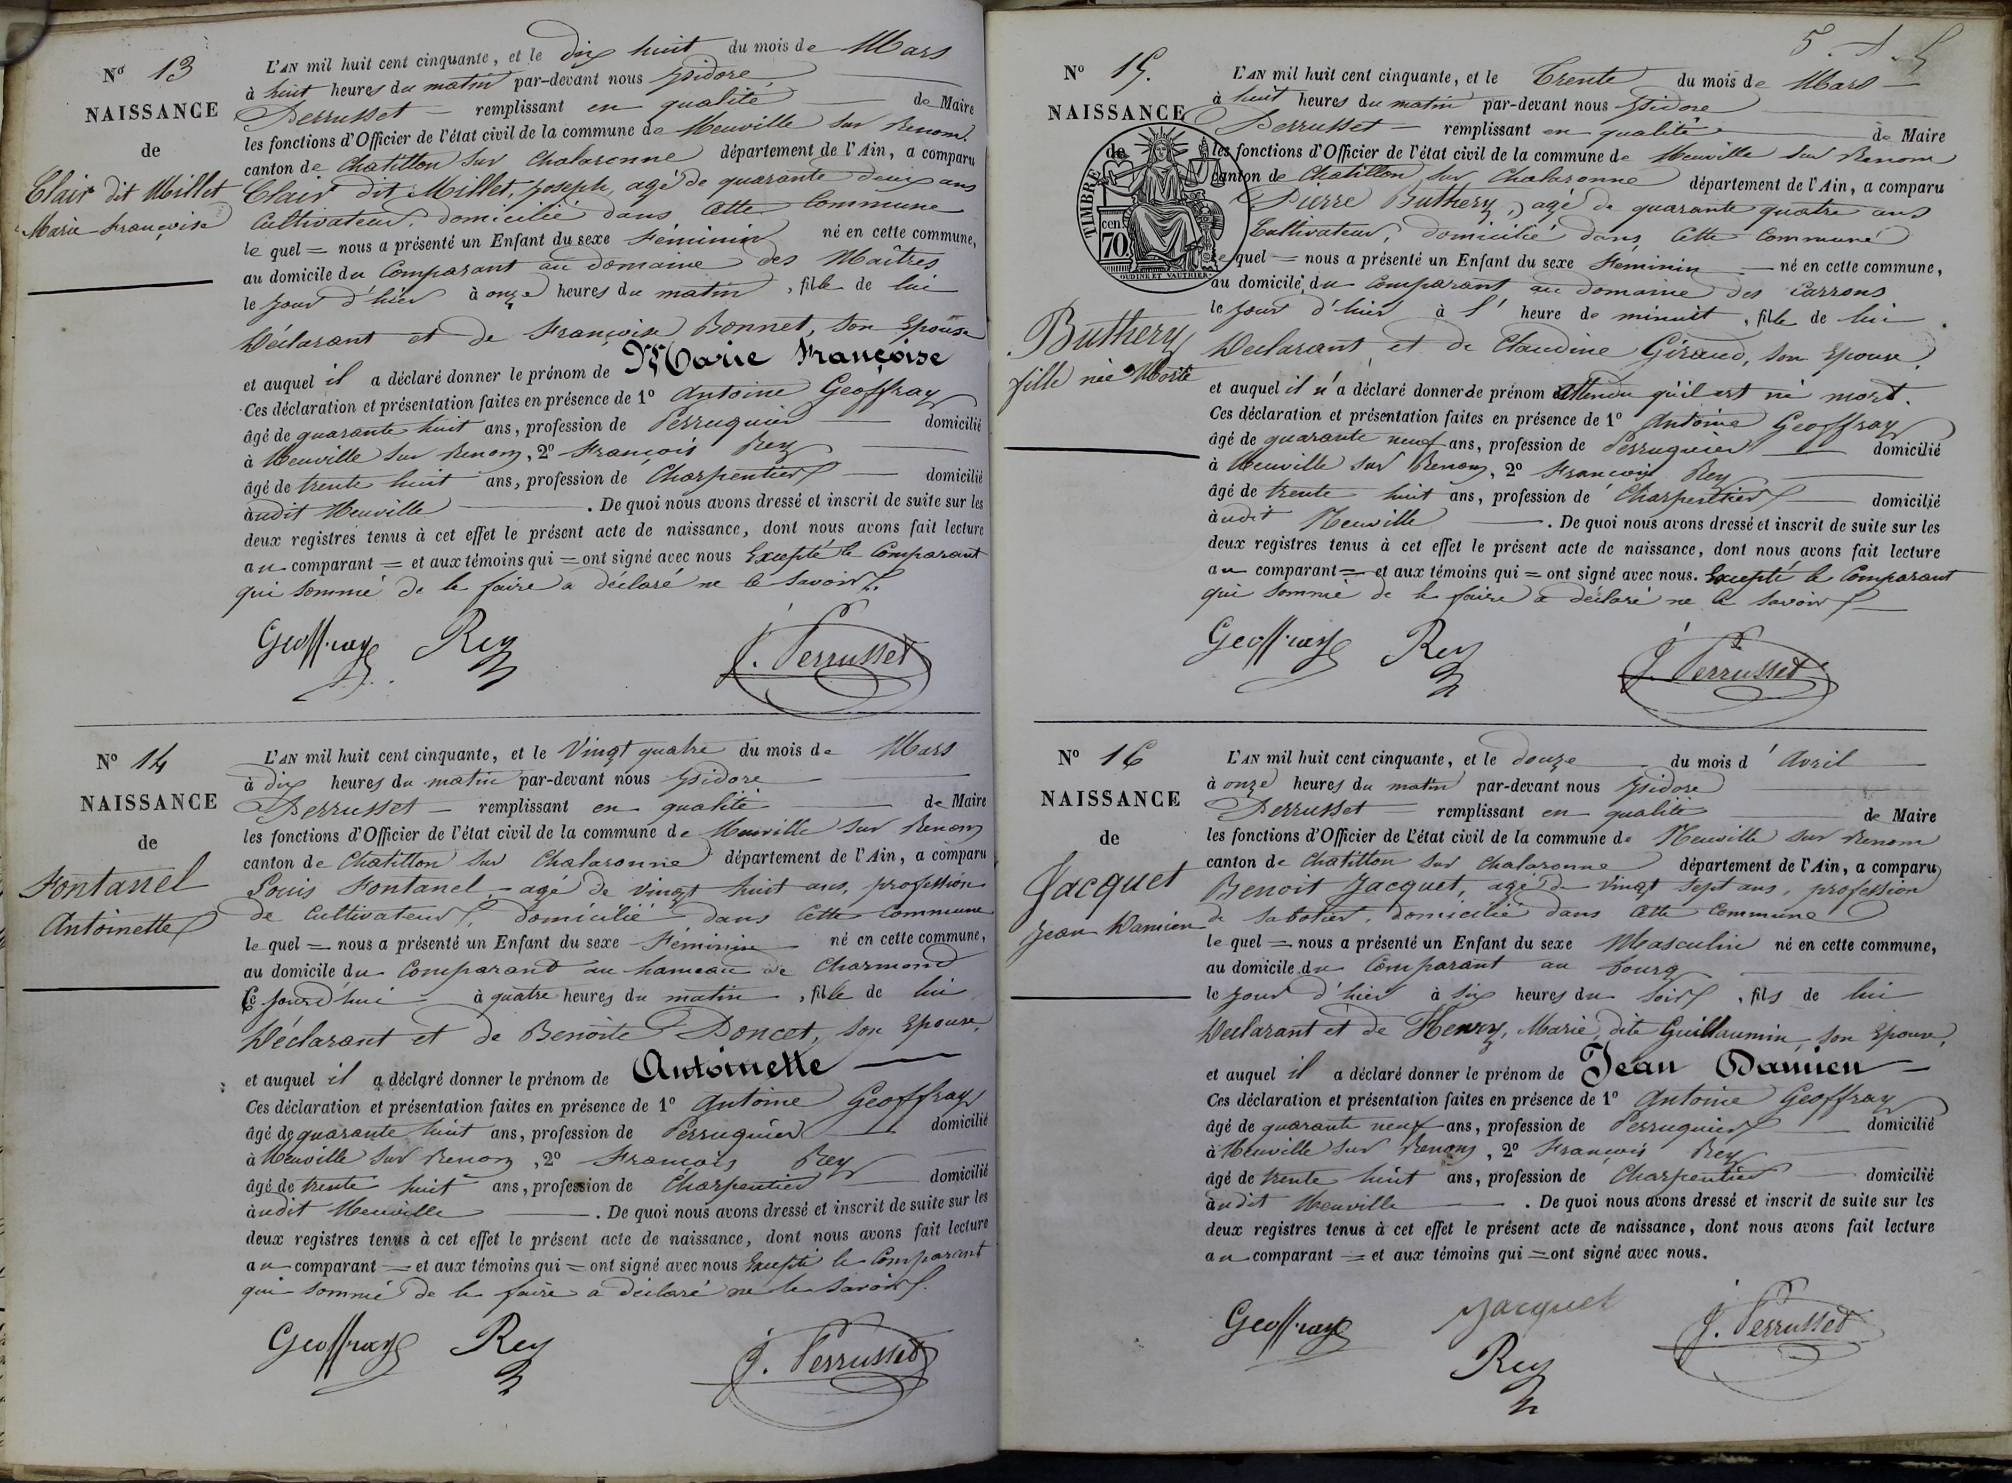 Nº 13
NAISSANCE
de
Clair dit Millet
Marie Françoise
L'AN mil huit cent cinquante, et le dix huit du mois de Mars
à huit heures du matin par-devant nous Ysidore
Perrusset remplissant en qualité de Maire
les fonctions d'Officier de l'état civil de la commune de Neuville sur Renom
canton de Chatillon sur Chalaronne département de l'Ain, a comparu
Clair dit Millet, Joseph, agé de quarante deux ans
Cultivateur, domicilié dans Cette Commune
le quel = nous a présenté un Enfant du sexe Féminin né en cette commune,
au domicile du Comparant au domaine des Maîtres
le jour d'hier à onze heures du matin, fille de lui
Déclarant et de Françoise Bonnet, son Epouse
et auquel il a déclaré donner le prénom de Marie Françoise
Ces déclaration et présentation faites en présence de 1º Antoine Geoffray
âgé de quarante huit ans, profession de Perruquier domicilié
à Neuville sur Renom, 2º François Rey
âgé de trente huit ans, profession de Charpentier domicilié
audit Neuville. De quoi nous avons dressé et inscrit de suite sur les
deux registres tenus à cet effet le présent acte de naissance, dont nous avons fait lecture
au comparant = et aux témoins qui = ont signé avec nous Excepté le Comparant
qui sommé de le faire a déclaré ne le savoir.
Geoffray Rey J. Perrusset
Nº 14
NAISSANCE
de
Fontanel
Antoinette
L'AN mil huit cent cinquante, et le Vingt quatre du mois de Mars
à dix heures du matin par-devant nous Ysidore
Perrusset remplissant en qualité de Maire
les fonctions d'Officier de l'état civil de la commune de Neuville sur Renom
canton de Chatillon sur Chalaronne département de l'Ain, a comparu
Louis Fontanel, agé de vingt huit ans, profession
de Cultivateur, domicilié dans Cette Commune
le quel = nous a présenté un Enfant du sexe Féminin né en cette commune,
au domicile du Comparant au hameau de Charmond
Ce jourd'hui à quatre heures du matin, fille de lui
Déclarant et de Benoite Poncet, son Epouse,
et auquel il a déclaré donner le prénom de Antoinette
Ces déclaration et présentation faites en présence de 1º Antoine Geoffray
âgé de quarante huit ans, profession de Perruquier domicilié
à Neuville sur Renom, 2º François Rey
âgé de trente huit ans, profession de Charpentier domicilié
audit Neuville. De quoi nous avons dressé et inscrit de suite sur les
deux registres tenus à cet effet le présent acte de naissance, dont nous avons fait lecture
au comparant = et aux témoins qui = ont signé avec nous Excepté le Comparant
qui sommé de le faire a déclaré ne le savoir.
Geoffray Rey J. Perrusset
Nº 15.
NAISSANCE
de
TIMBRE
cen.
70
OUDINE ET VAUTHIER
Buthery
fille née Morte
L'AN mil huit cent cinquante, et le Trente du mois de Mars
à huit heures du matin par-devant nous Ysidore
Perrusset remplissant en qualité de Maire
les fonctions d'Officier de l'état civil de la commune de Neuville sur Renom
canton de Chatillon sur Chalaronne département de l'Ain, a comparu
Pierre Buthery, agé de quarante quatre ans
Cultivateur, domicilié dans Cette Commune
le quel = nous a présenté un Enfant du sexe Feminin né en cette commune,
au domicile du Comparant au domaine des Carrons
le jour d'hier à l' heure de minuit, fille de lui
Declarant, et de Claudine Géraud, son Epouse.
et auquel il n'a déclaré donner de prénom attendu qu'il est né mort.
Ces déclaration et présentation faites en présence de 1º Antoine Geoffray
âgé de quarante neuf ans, profession de Perruquier domicilié
à Neuville sur Renom, 2º François Rey
âgé de trente huit ans, profession de Charpentier domicilié
audit Neuville. De quoi nous avons dressé et inscrit de suite sur les
deux registres tenus à cet effet le présent acte de naissance, dont nous avons fait lecture
au comparant = et aux témoins qui = ont signé avec nous. Excepté le Comparant
qui sommé de le faire a déclaré ne le savoir
Geoffray Rey J. Perrusset
Nº 16
NAISSANCE
de
Jacquet
Jean Damien
L'AN mil huit cent cinquante, et le douze du mois d'Avril
à onze heures du matin par-devant nous Ysidore
Perrusset remplissant en qualité de Maire
les fonctions d'Officier de l'état civil de la commune de Neuville sur Renom
canton de Chatillon sur Chalaronne département de l'Ain, a comparu
Benoit Jacquet, agé de vingt sept ans, profession
de sabotier, domicilié dans Cette Commune
le quel = nous a présenté un Enfant du sexe Masculin né en cette commune,
au domicile du Comparant au bourg
le jour d'hier à six heures du soir, fils de lui
Declarant et de Henry, Marie, dite Guillaumin, son Epouse,
et auquel il a déclaré donner le prénom de Jean Damien
Ces déclaration et présentation faites en présence de 1º Antoine Geoffray
âgé de quarante neuf ans, profession de Perruquier domicilié
à Neuville sur Renom, 2º François Rey
âgé de trente huit ans, profession de Charpentier domicilié
audit Neuville. De quoi nous avons dressé et inscrit de suite sur les
deux registres tenus à cet effet le présent acte de naissance, dont nous avons fait lecture
au comparant = et aux témoins qui = ont signé avec nous.
Geoffray Jacquet J. Perrusset
Rey